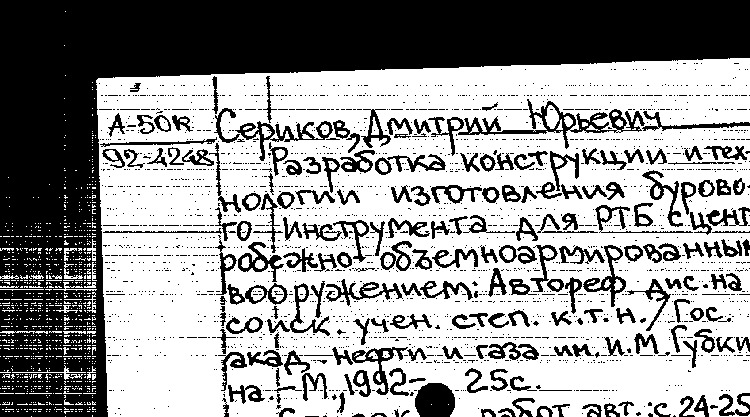 А-50к
92-4248
Сериков, Дмитрий Юрьевич
Разработка конструкции и тех-
нологии изготовления бурово-
го инструмента для РТБ с цент
робежно-объемноармированным
вооружением: Автореф. дис. на
соиск. учен. степ. к.т.н. / Гос.
акад. нефти и газа им. И.М. Губки
на. - М., 1992. - 25с.
работ авт.: с.24-25